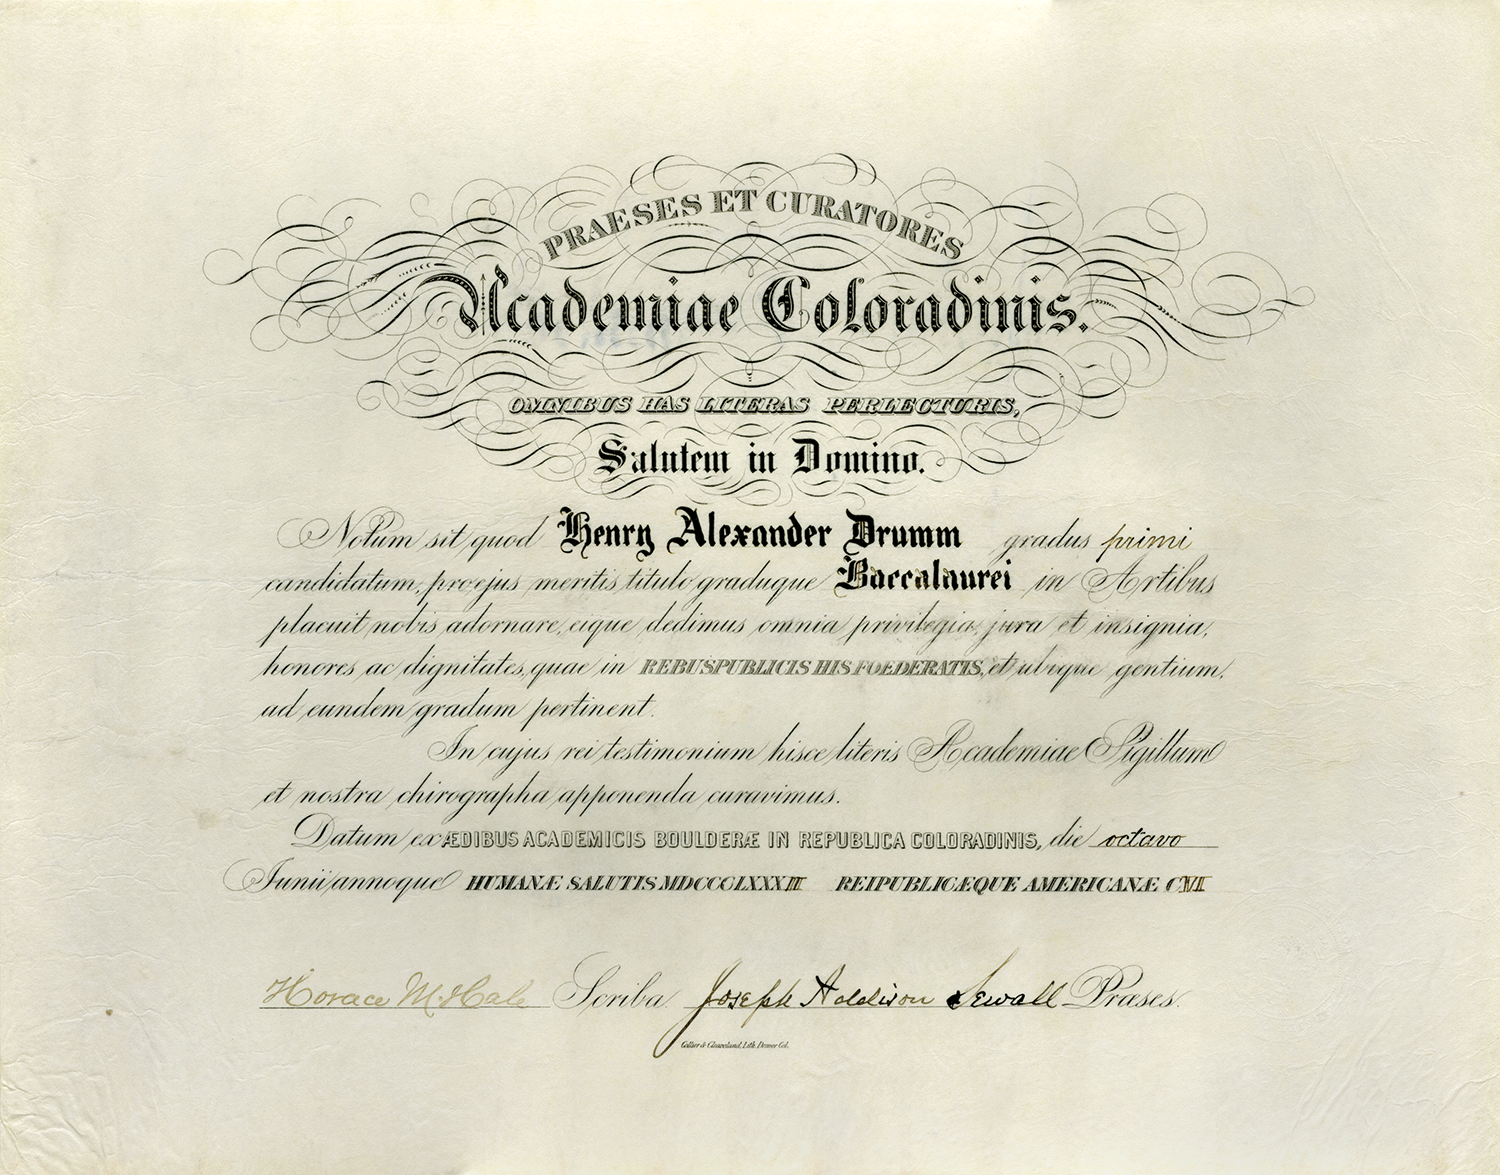 PRAESES ET CURATORES
Academiae Coloradinis.
OMNIBUS HAS LITERAS PERLECTURIS,
Salutem in Domino.
Notum sit quod Henry Alexander Drumm gradus primi
candidatum, pro ejus meritis titulo graduque Baccalaurei in Artibus
placuit nobis adornare, eique dedimus omnia privilegia, jura et insignia,
honores ac dignitates, quae in REBUSPUBLICIS HIS FOEDERATIS, et ubique gentium,
ad eundem gradum pertinent.
In cujus rei testimonium hisce literis Academiae Sigillum
et nostra chirographa apponenda curavimus.
Datum ex ÆDIBUS ACADEMICIS BOULDERÆ IN REPUBLICA COLORADINIS, die octavo
Junii annoque HUMANÆ SALUTIS MDCCCLXXXII REIPUBLICÆQUE AMERICANÆ CVI
Horace M. Hale Scriba. Joseph Addison Sewall Præses.
Collier & Cleaveland, Lith. Denver Col.